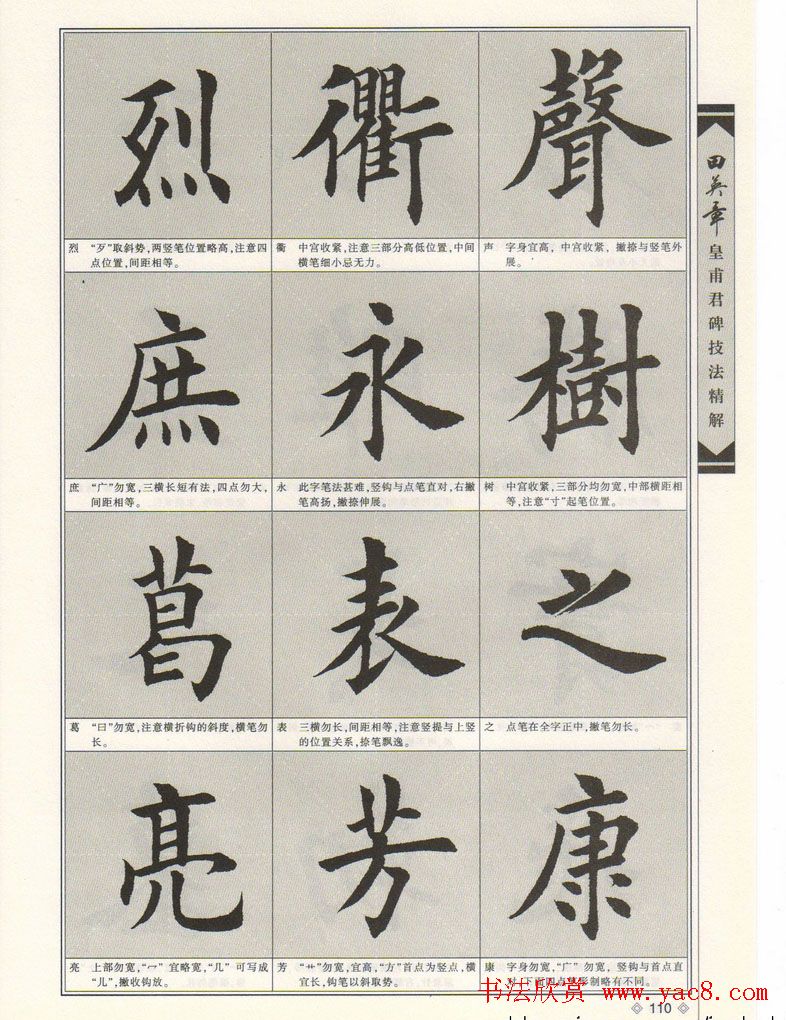 烈 衢 聲
烈 “歹”取斜势，两竖笔位置略高，注意四
点位置，间距相等。
衢 中宫收紧，注意三部分高低位置，中间
横笔细小忌无力。
声 字身宜高，中宫收紧，撇捺与竖笔外
展。
庶 永 樹
庶 “广”勿宽，三横长短有法，四点勿大，
间距相等。
永 此字笔法甚难，竖钩与点笔直对，右撇
笔高扬，撇捺伸展。
树 中宫收紧，三部分均勿宽，中部横距相
等，注意“寸”起笔位置。
葛 表 之
葛 “曰”勿宽，注意横折钩的斜度，横笔勿
长。
表 三横勿长，间距相等，注意竖提与上竖
的位置关系，捺笔飘逸。
之 点笔在全字正中，撇笔勿长。
亮 芳 康
亮 上部勿宽，“冖”宜略宽，“几”可写成
“儿”，撇收钩放。
芳 “艹”勿宽，宜高，“方”首点为竖点，横
宜长，钩笔以斜取势。
康 字身勿宽，“广”勿宽，竖钩与首点直
对，下面四点笔形制略有不同。
田英章
皇甫君碑技法精解
书法欣赏 www.yac8.com
110